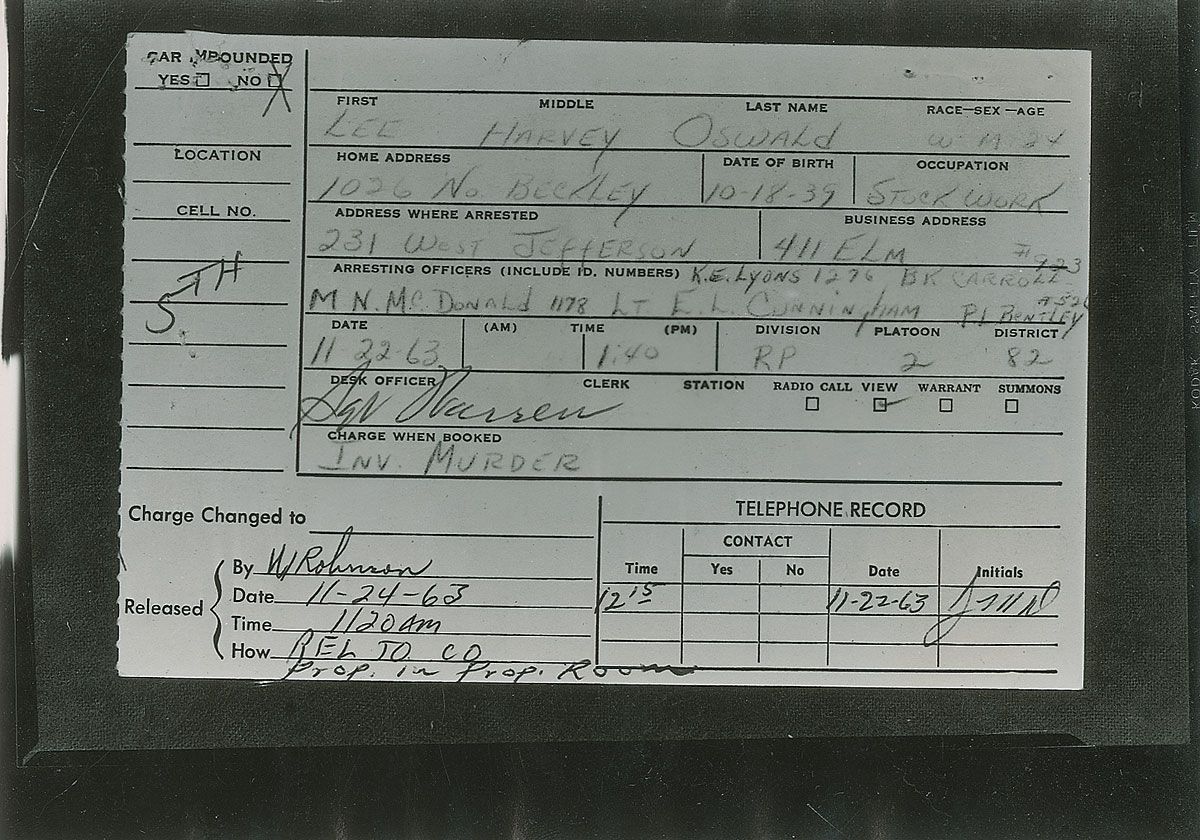 CAR IMPOUNDED
YES NO X
FIRST MIDDLE LAST NAME RACE—SEX—AGE
LEE HARVEY OSWALD W M 24
LOCATION
HOME ADDRESS DATE OF BIRTH OCCUPATION
1026 NO BECKLEY 10-18-39 STOCK WORK
CELL NO.
ADDRESS WHERE ARRESTED BUSINESS ADDRESS
231 WEST JEFFERSON 411 ELM
ARRESTING OFFICERS (INCLUDE ID. NUMBERS) K.E. LYONS 1276 BK CARROLL #923
M N. MC. DONALD 1178 LT E. L. CUNNINGHAM P L BENTLEY #526
DATE (AM) TIME (PM) DIVISION PLATOON DISTRICT
11 22-63 1:40 RP 2 82
DESK OFFICER CLERK STATION RADIO CALL VIEW WARRANT SUMMONS
Sgt Warren
CHARGE WHEN BOOKED
INV. MURDER
Charge Changed to
Released
By W Robinson
Date 11-24-63
Time 1120 AM
How REL TO CO
Prop. in Prop. Room
TELEPHONE RECORD
CONTACT
Time Yes No Date Initials
12 15 11-22-63